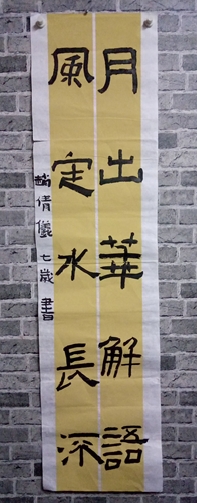 月出華解語
風定水長深
趙倩儀七歲書